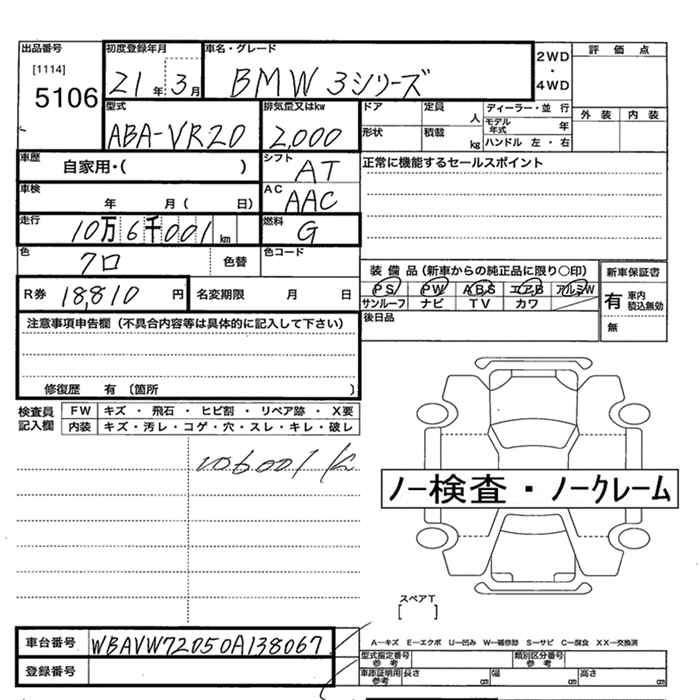 出品番号 初度登録年月 車名・グレード 2WD・4WD 評価点
[1114] 5106 21年3月 BMW 3シリーズ 外装 内装
型式 排気量又はkw ドア 定員 人 ディーラー・並行
ABA-VR20 2,000 形状 積載 kg モデル年式 年
ハンドル 左・右
車歴 自家用・( ) シフト AT 正常に機能するセールスポイント
車検 年 月 ( 日) AC AAC
走行 10万6千001km 燃料 G
色 クロ 色替 色コード
装備品(新車からの純正品に限り○印) 新車保証書
R券 18,810円 名変期限 月 日 PS PW ABS エアB アルミW 有 車内積込無効
サンルーフ ナビ TV カワ 無
注意事項申告欄(不具合内容等は具体的に記入して下さい) 後日品
修復歴 有 〔箇所 〕
検査員記入欄 FW キズ・飛石・ヒビ割・リペア跡・X要
内装 キズ・汚レ・コゲ・穴・スレ・キレ・破レ
106001K
ノー検査・ノークレーム
スペアT
[ ]
車台番号 WBAVW72050A138067 A―キズ E―エクボ U―凹み W―補修跡 S―サビ C―腐食 XX―交換済
登録番号 型式指定番号 参考 類別区分番号 参考
車庫証明用 参考 長さ cm 幅 cm 高さ cm